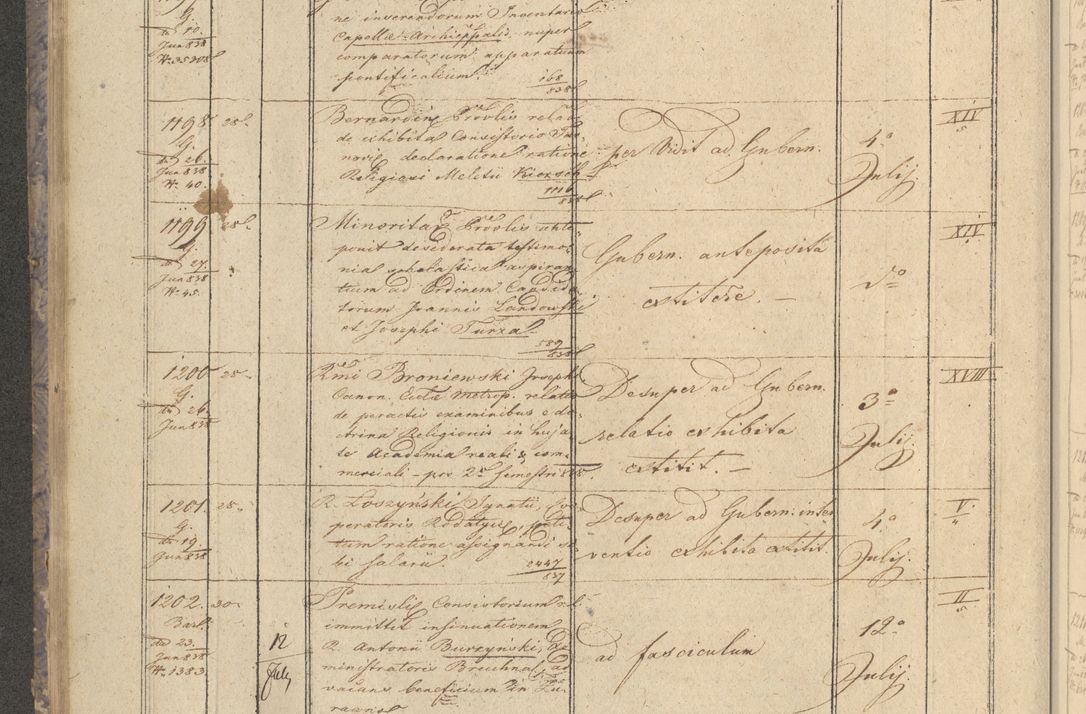 ne inserendorum Inventario
Capellae Archieppalis nuper
comparatorum apparatuum
pontificalium
168
838
Jun 838
N. 35208
1198 28
G.
dto 26
Jun 838
N. 40.
Bernardin Provlis relat
de exhibita Consistorio Tar-
novis declaratione ratione
Religiosi Meletii Kiersch
1116
838
per Vidit ad Gubern.
4a
Julij
XIV
5
1199 28
G.
dto 27
Jun 838
N. 45.
Minoritar Provlis
ponit desiderata testimo-
nia scholastica aspiran-
tium ad Ordinem Candida
torum Joannis Landowski
et Josephi Turza
589
838
Gubern. anteposita
extitere. —
5o
XIV
1200 25
G.
dto 26
Jun 838
Rmi Broniewski Joseph
Canon. Eccle Metrop. relatio
de peractis examinibus e do-
ctrina Religionis in huja-
te Academia reali & com-
merciali pro 2o Semestri
Desuper ad Gubern.
relatio exhibita
extitit. —
3a
Julij.
XVIII
1201. 25
G.
dto 19
Jun 838
R. Łoszyński Ignatii, Co-
peratoris Rdatyce, peti-
tum ratione assignandi si-
bi salarii.
2447
837
Desuper ad Gubern: inter
ventio exhibita extitit.
4a
Julij.
V.
1202. 30
dto 23
Jun 838
N. 1383
12
July
Premislis Consistorium
immittit insinuationem
R. Antonii Burzynski, Ad
ministratoris Bruchnal, ad
vacans beneficium in Zu-
rawno
ad fasciculum
12a
Julij.
II
5